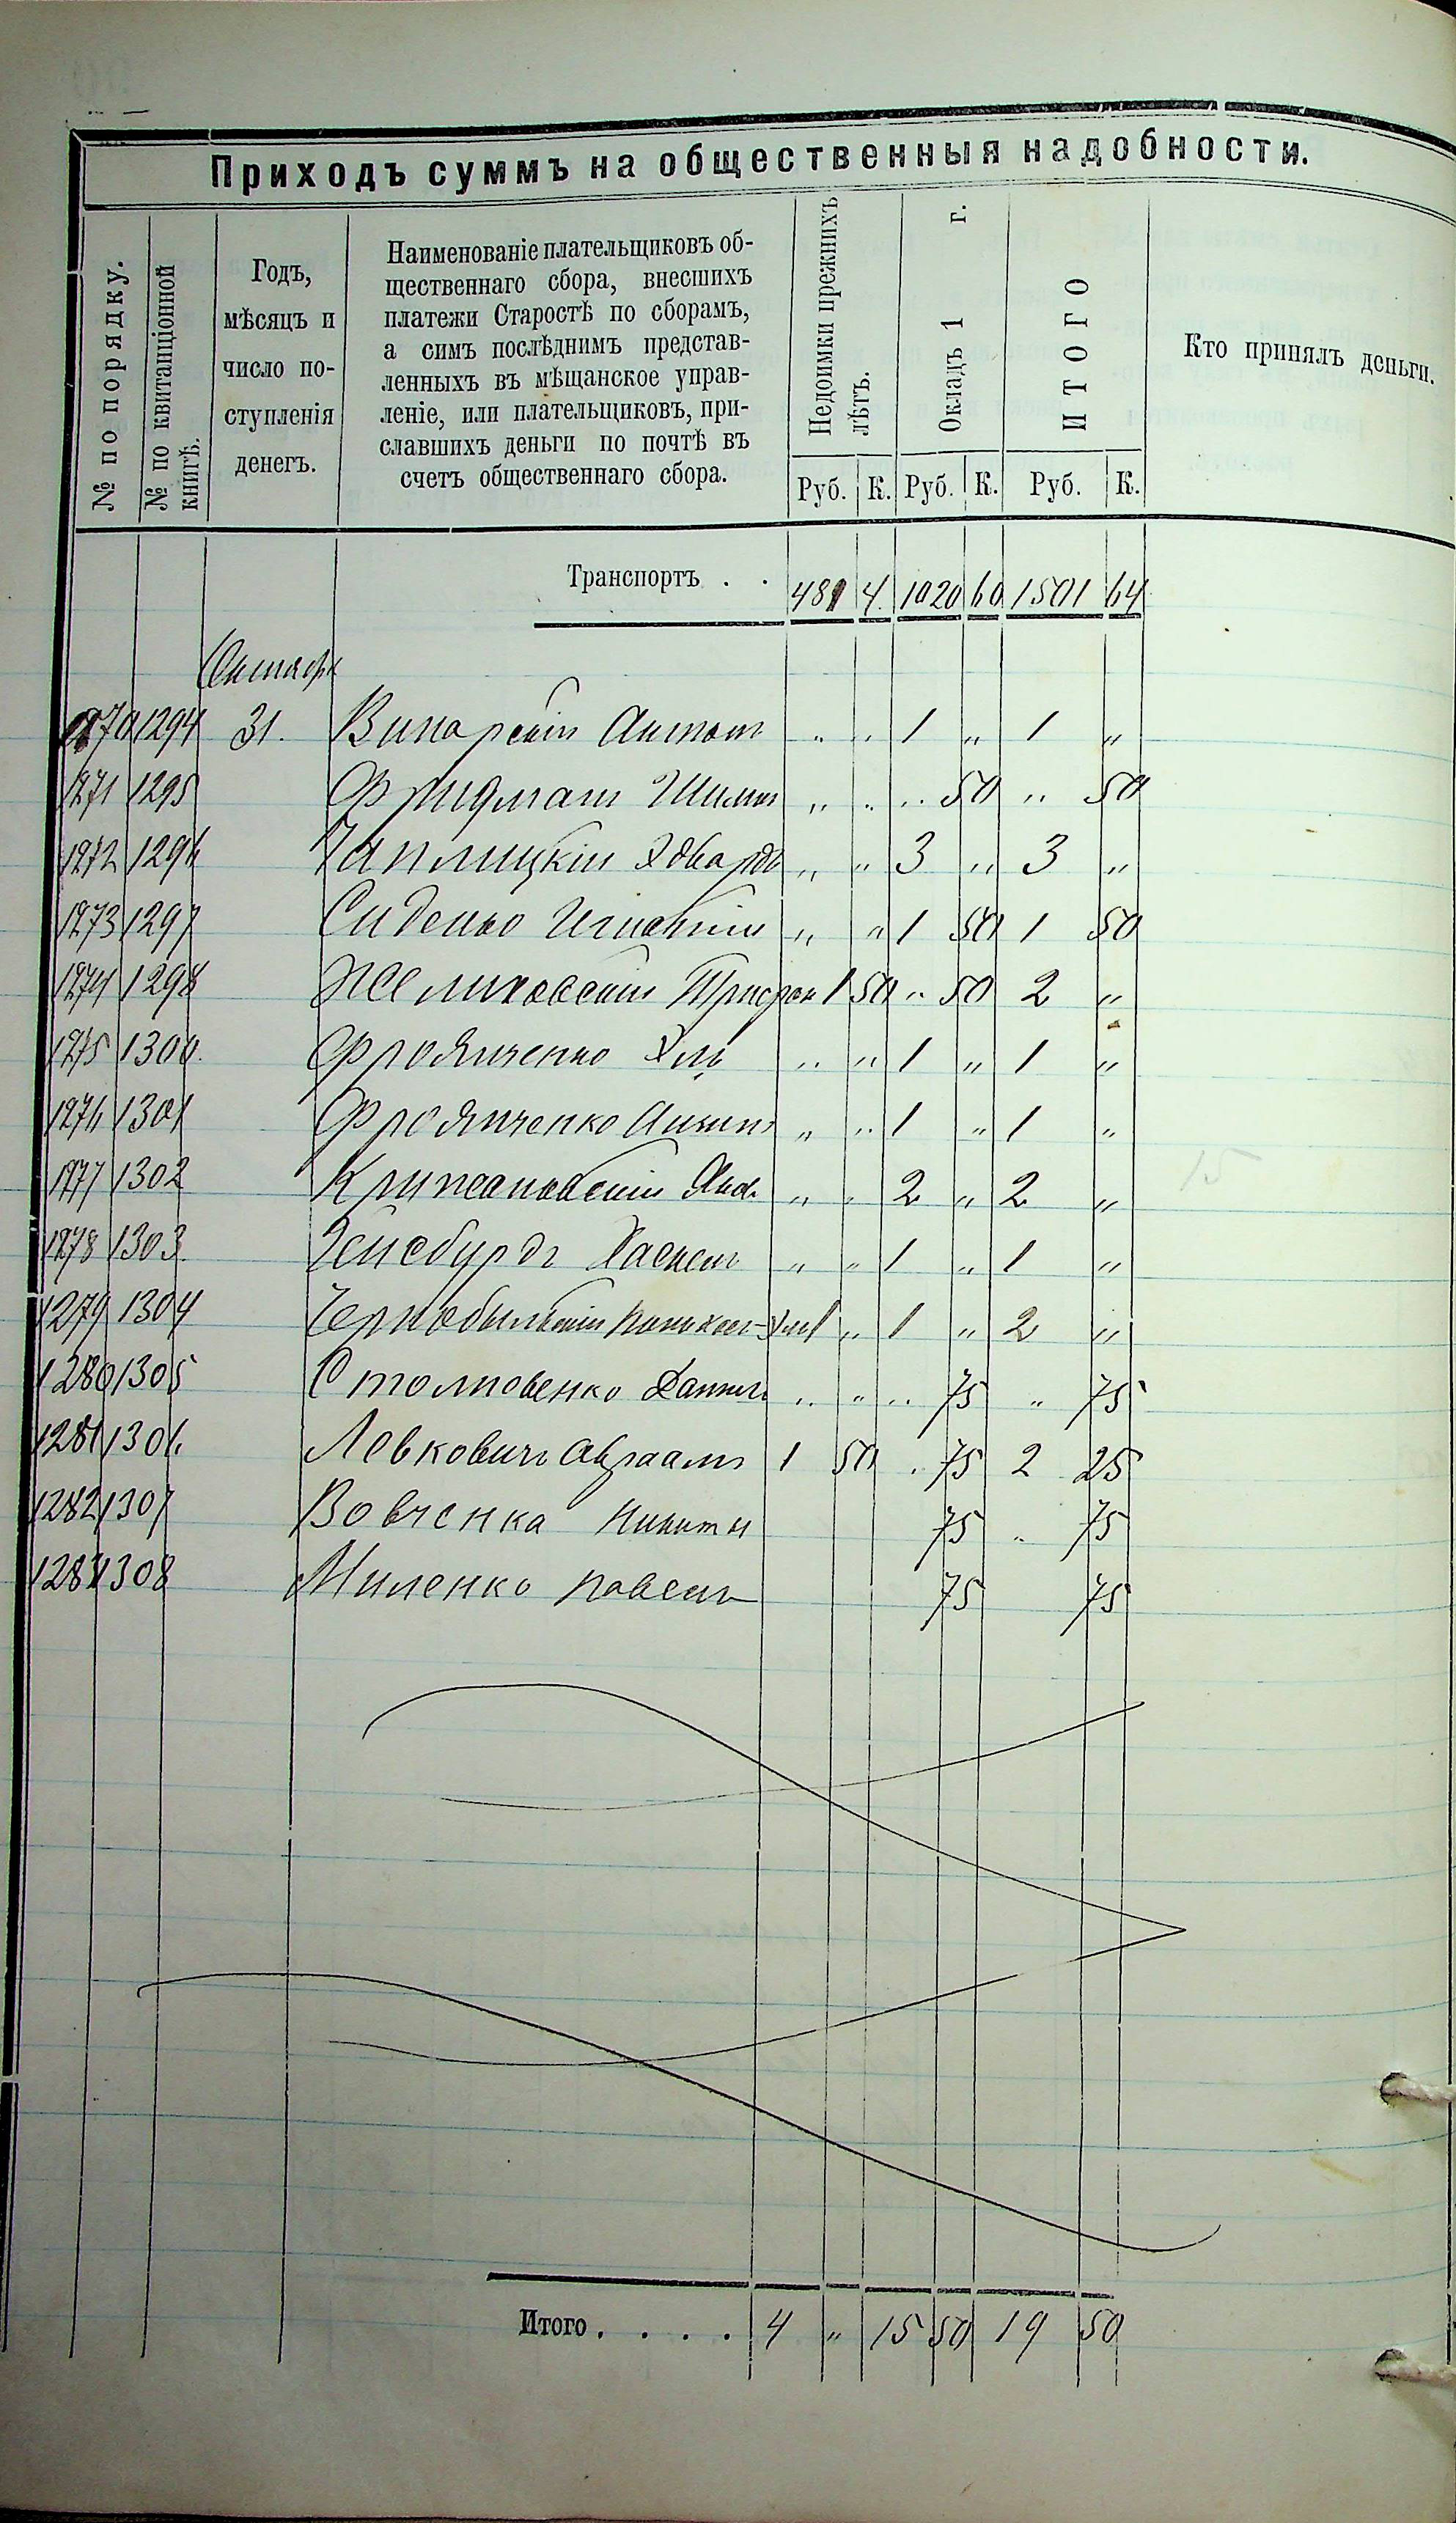 Приходъ суммъ на общественныя надобности.
№ по порядку.
№ по квитанціонной
книгѣ.
Годъ,
мѣсяцъ и
число по-
ступленія
денегъ.
Наименованіе плательщиковъ об-
щественнаго сбора, внесшихъ
платежи Старостѣ по сборамъ,
а симъ послѣднимъ представ-
ленныхъ въ мѣщанское управ-
леніе, или плательщиковъ, при-
славшихъ деньги по почтѣ въ
счетъ общественнаго сбора.
Недоимки прежнихъ
лѣтъ.
Окладъ 1 г.
ИТОГО
Кто принялъ деньги.
Руб. К. Руб. К. Руб. К.
Транспортъ . . 481 4 1020 60 1501 64
Октября
1270 1294 31. Винарскій Антонъ „ „ 1 „ 1 „
1271 1295 Фридманъ „ „ „ 50 „ 50
1272 1296 Чаплицкій Эдвардъ „ „ 3 „ 3 „
1273 1297 Сиденко „ „ 1 50 1 50
1274 1298 Желиховскій 1 50 „ 50 2 „
1275 1300. „ „ 1 „ 1 „
1276 1301 „ „ 1 „ 1 „
1277 1302 Крижановскій „ „ 2 „ 2 „
1278 1303. Хаскель „ „ 1 „ 1 „
1279 1304 Чернобильскій 1 „ 1 „ 2 „
1280 1305 Столповенко „ „ „ 75 „ 75
1281 1306. Левковичъ Авраамъ 1 50 „ 75 2 25
1282 1307 Вовченка Никита 75 „ 75
1283 1308 Миленко Павелъ 75 75
15
Итого . . . . 4 „ 15 50 19 50